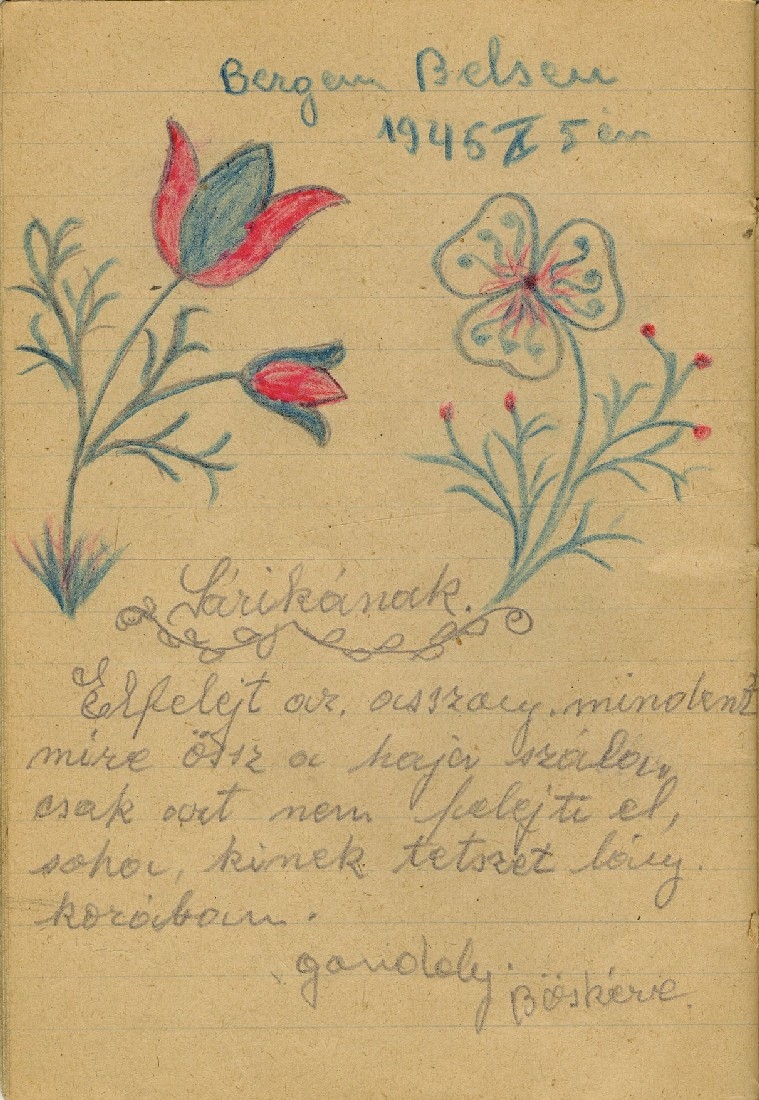 Bergem Belsen
1945 X 5 én
Sárikának.
Elfelejt az. asszony. mindent
mire össz a haja szálán,
csak azt nem felejti el,
soha, kinek tetszet lány.
korában.
gondoly.
Böskére.